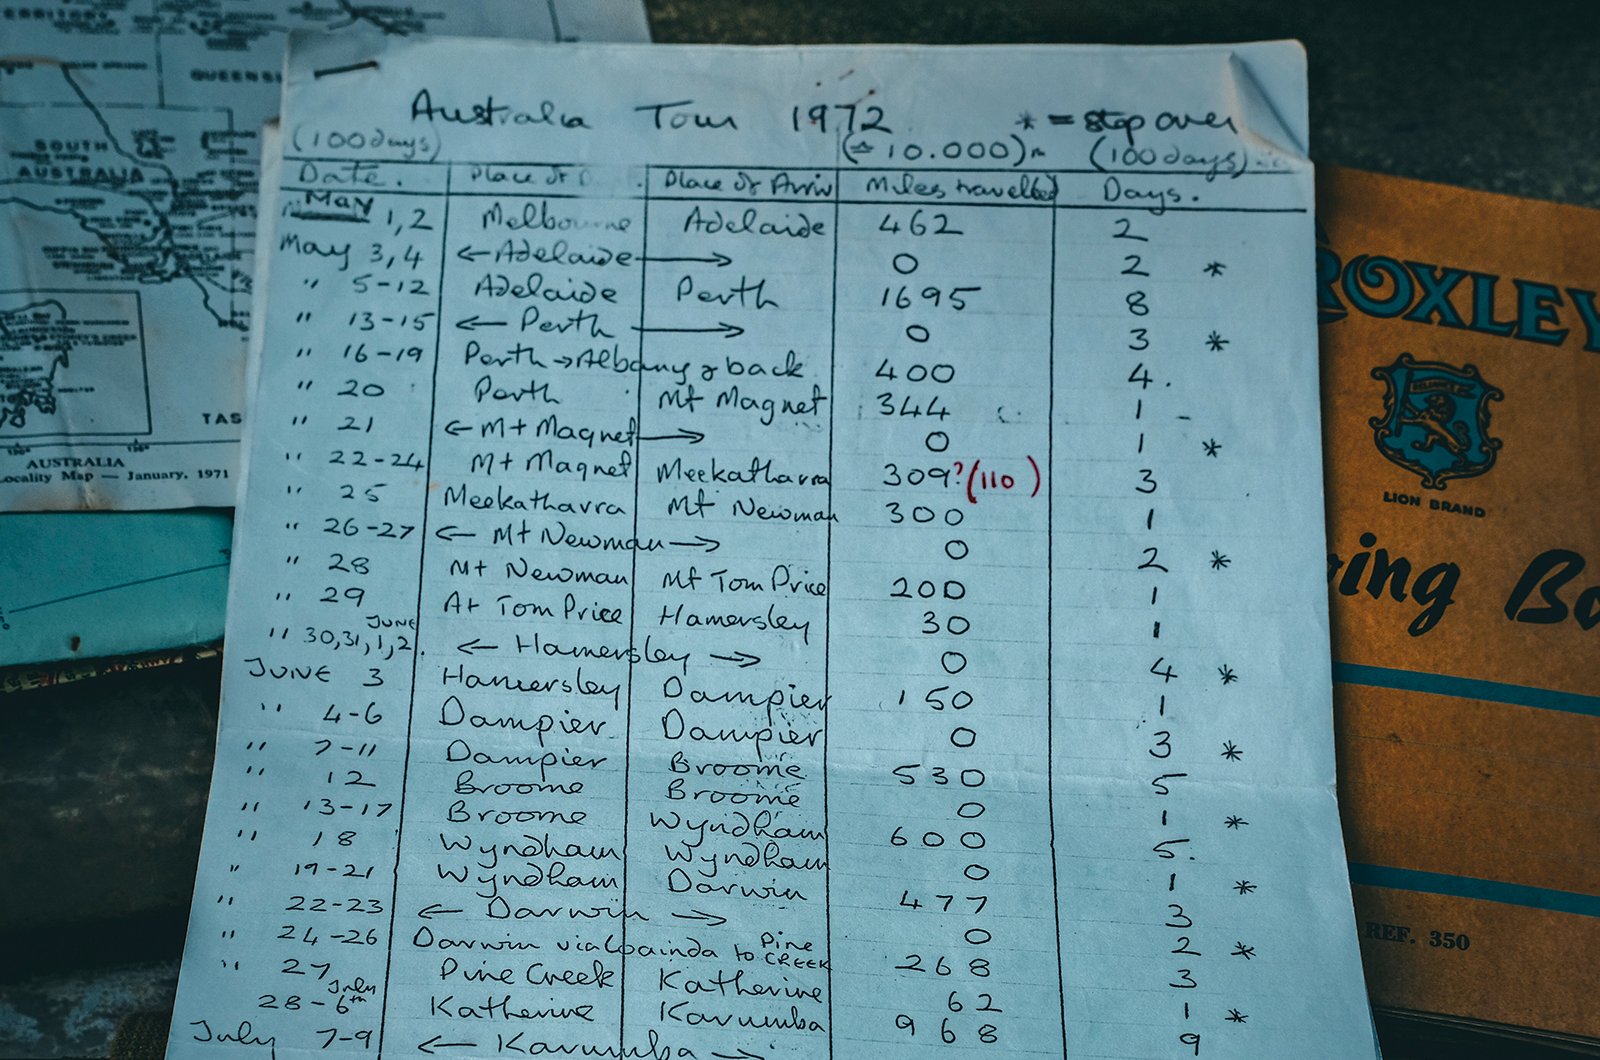 QUEENSL
SOUTH
AUSTRALIA
TAS
AUSTRALIA
Locality Map — January, 1971
Australia Tour 1972 * = stop over
(100 days) (≏ 10.000) m (100 days)
Date. Place of D Place of Arriv Miles travelled Days.
May 1,2 Melbourne Adelaide 462 2
May 3,4 ← Adelaide → 0 2 *
" 5-12 Adelaide Perth 1695 8
" 13-15 ← Perth → 0 3 *
" 16-19 Perth → Albany & back 400 4.
" 20 Perth Mt Magnet 344 1 -
" 21 ← Mt Magnet → 0 1 *
" 22-24 Mt Magnet Meekatharra 309? (110) 3
" 25 Meekatharra Mt Newman 300 1
" 26-27 ← Mt Newman → 0 2 *
" 28 Mt Newman Mt Tom Price 200 1
" 29 At Tom Price Hamersley 30 1
" 30,31, JUNE 1,2. ← Hamersley → 0 4 *
JUNE 3 Hamersley Dampier 150 1
" 4-6 Dampier Dampier 0 3 *
" 7-11 Dampier Broome 530 5
" 12 Broome Broome 0 1 *
" 13-17 Broome Wyndham 600 5.
" 18 Wyndham Wyndham 0 1 *
" 19-21 Wyndham Darwin 477 3
" 22-23 ← Darwin → 0 2 *
" 24-26 Darwin via to Pine CREEK 268 3
" 27 Pine Creek Katherine 62 1 *
28 - July 6th Katherine Karumba 968 9
July 7-9 ← Karumba →
ROXLEY
RELIANCE
LION BRAND
ing Bo
REF. 350